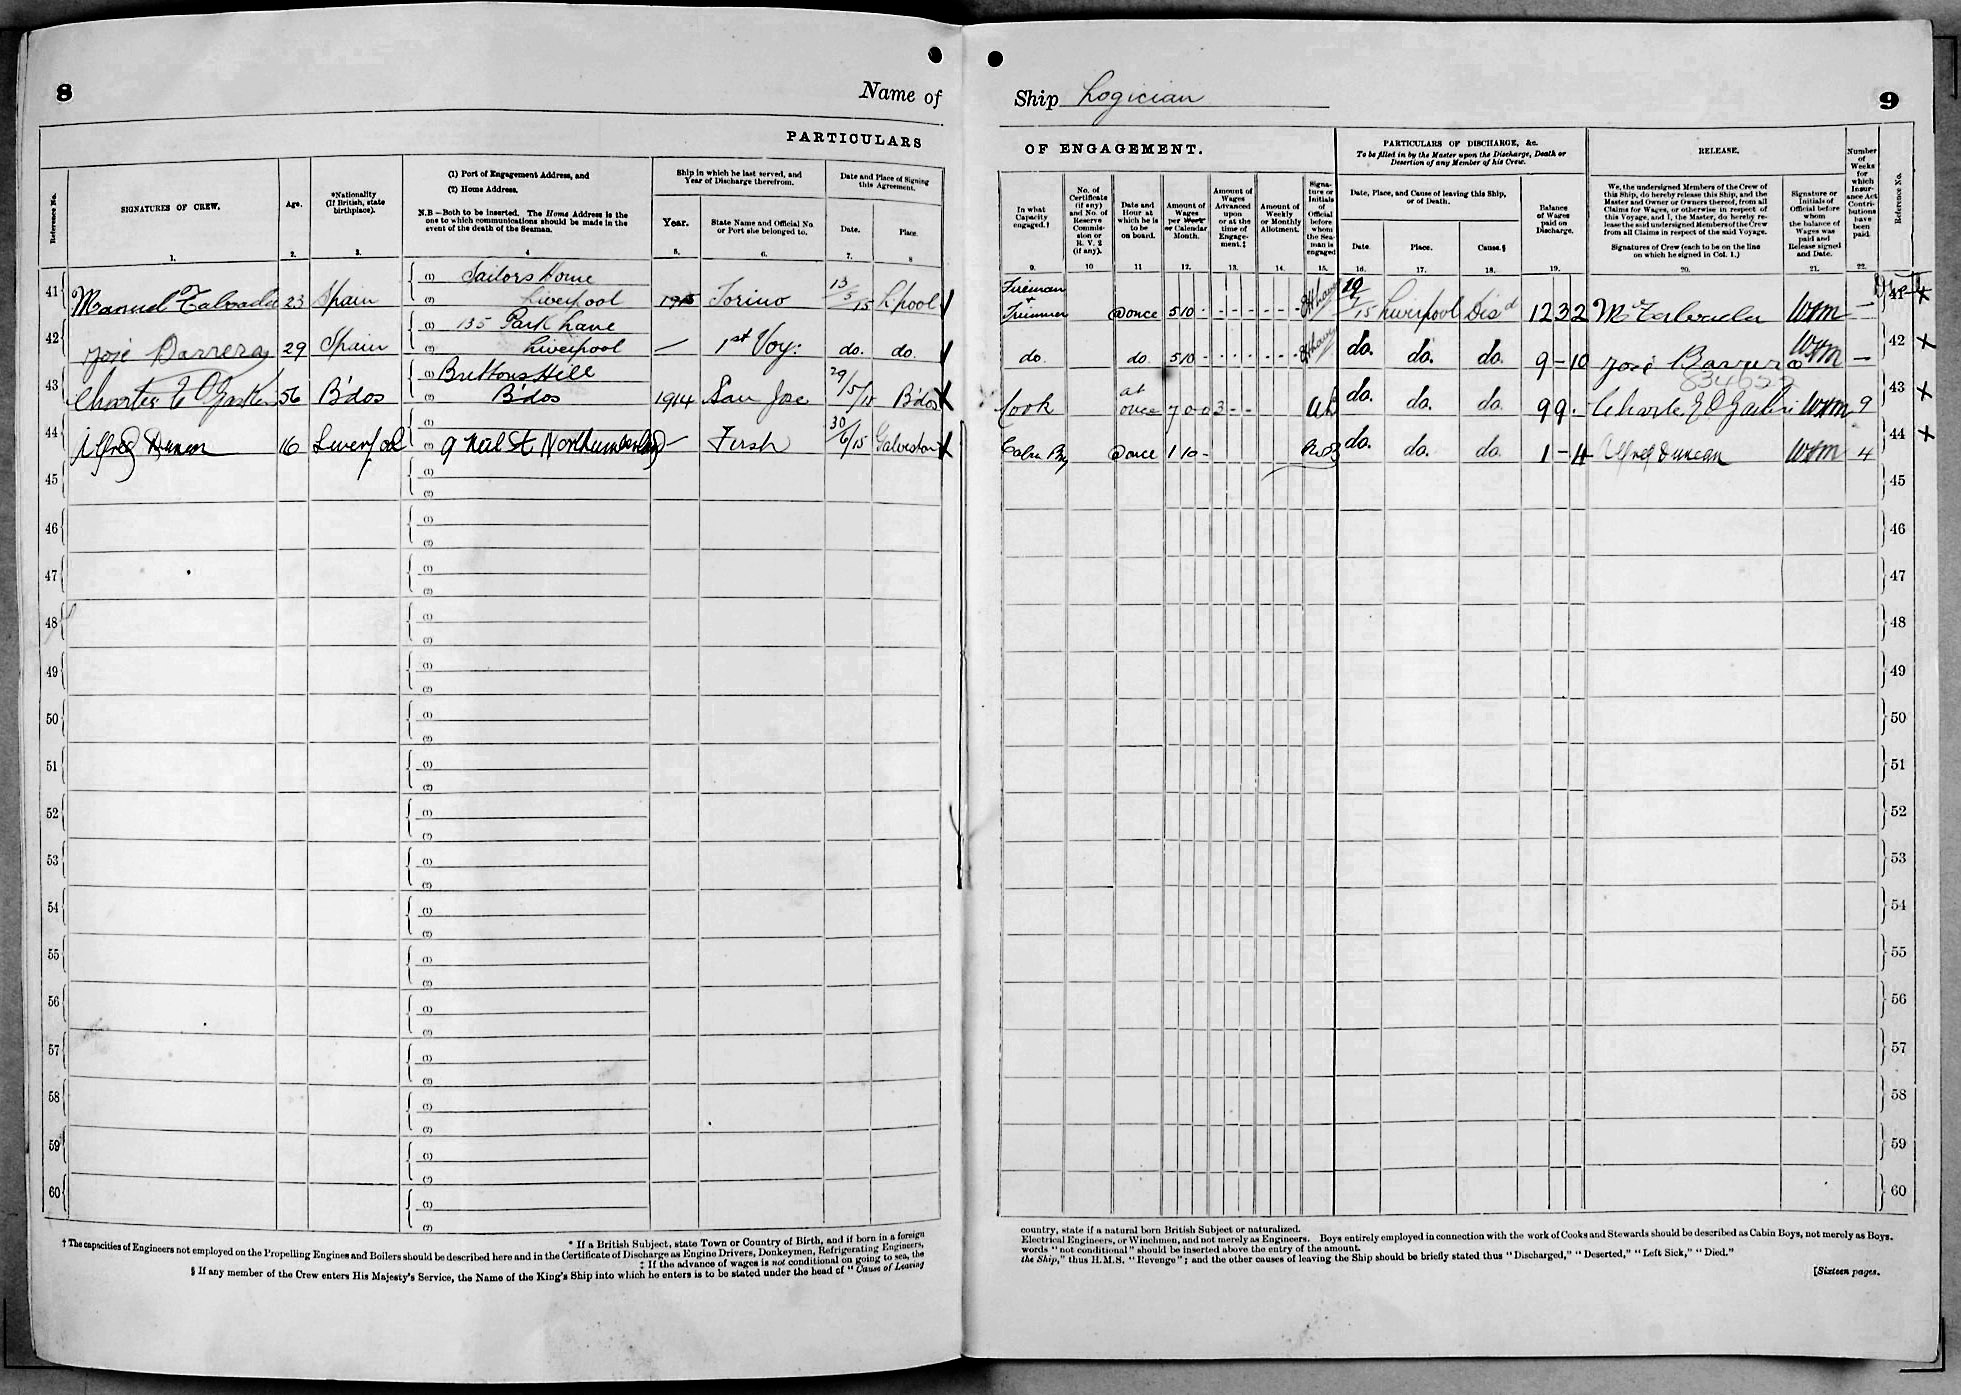 8
Name of
PARTICULARS
Reference No.
SIGNATURES OF CREW.
Age.
*Nationality
(If British, state
birthplace).
(1) Port of Engagement Address, and
(2) Home Address.
N.B—Both to be inserted. The Home Address is the
one to which communications should be made in the
event of the death of the Seaman.
Ship in which he last served, and
Year of Discharge therefrom.
Year.
State Name and Official No.
or Port she belonged to.
Date and Place of Signing
this Agreement.
Date.
Place.
1. 2. 3. 4 5. 6. 7. 8
41 (1) Sailors Home 13
Manuel 23 Spain (2) Liverpool 1915 Torino /5/15 L'pool
42 (1) 135 Park Lane
José Barrera 29 Spain (2) Liverpool — 1st Voy: do. do.
43 (1) Brittons Hill 29
Charles E O 56 B'dos (2) B'dos 1914 San Jose /5/15 B'dos
44 (1) 30
Alfred Duncan 16 Liverpool (2) 9 Neil St Northumberland — First /6/15 Galveston
45 (1)
(2)
46 (1)
(2)
47 (1)
(2)
48 (1)
(2)
49 (1)
(2)
50 (1)
(2)
51 (1)
(2)
52 (1)
(2)
53 (1)
(2)
54 (1)
(2)
55 (1)
(2)
56 (1)
(2)
57 (1)
(2)
58 (1)
(2)
59 (1)
(2)
60 (1)
(2)
* If a British Subject, state Town or Country of Birth, and if born in a foreign
† The capacities of Engineers not employed on the Propelling Engines and Boilers should be described here and in the Certificate of Discharge as Engine Drivers, Donkeymen, Refrigerating Engineers,
‡ If the advance of wages is not conditional on going to sea, the
§ If any member of the Crew enters His Majesty's Service, the Name of the King's Ship into which he enters is to be stated under the head of "Cause of Leaving
Ship Logician
9
OF ENGAGEMENT.
PARTICULARS OF DISCHARGE, &c.
To be filled in by the Master upon the Discharge, Death or
Desertion of any Member of his Crew.
RELEASE.
In what
Capacity
engaged.†
No. of
Certificate
(if any)
and No. of
Reserve
Commis-
sion or
R. V. 2
(if any).
Date and
Hour at
which he is
to be
on board.
Amount of
Wages
per Week
or Calendar
Month.
Amount of
Wages
Advanced
upon
or at the
time of
Engage-
ment.‡
Amount of
Weekly
or Monthly
Allotment.
Signa-
ture or
Initials
of
Official
before
whom
the Sea-
man is
engaged
Date, Place, and Cause of leaving this Ship,
or of Death.
Date.
Place.
Cause.§
Balance
of Wages
paid on
Discharge.
We, the undersigned Members of the Crew of
this Ship, do hereby release this Ship, and the
Master and Owner or Owners thereof, from all
Claims for Wages, or otherwise in respect of
this Voyage, and I, the Master, do hereby re-
lease the said undersigned Members of the Crew
from all Claims in respect of the said Voyage.
Signatures of Crew (each to be on the line
on which he signed in Col. 1.)
Signature or
Initials of
Official before
whom
the balance of
Wages was
paid and
Release signed
and Date.
Number
of
Weeks
for
which
Insur-
ance Act
Contri-
butions
have
been
paid.
Reference No.
9. 10 11 12. 13. 14. 15. 16. 17. 18. 19. 20. 21. 22.
Fireman
+
Trimmer @ once 5 10 - Liverpool Disd 12 3 2 WHM — 41
do. do 5 10 - do. do. do. 9 - 10 José Barrera WHM — 42
Cook at
once 7 0 0 3 - - do. do. do. 9 9 . Charles E O WHM 9 43
Cabin Boy @ once 1 10 - do. do. do. 1 - 4 Alfred Duncan WHM 4 44
45
46
47
48
49
50
51
52
53
54
55
56
57
58
59
60
country, state if a natural born British Subject or naturalized.
Electrical Engineers, or Winchmen, and not merely as Engineers. Boys entirely employed in connection with the work of Cooks and Stewards should be described as Cabin Boys, not merely as Boys.
words "not conditional" should be inserted above the entry of the amount.
the Ship," thus H.M.S. "Revenge"; and the other causes of leaving the Ship should be briefly stated thus "Discharged," "Deserted," "Left Sick," "Died."
[Sixteen pages.